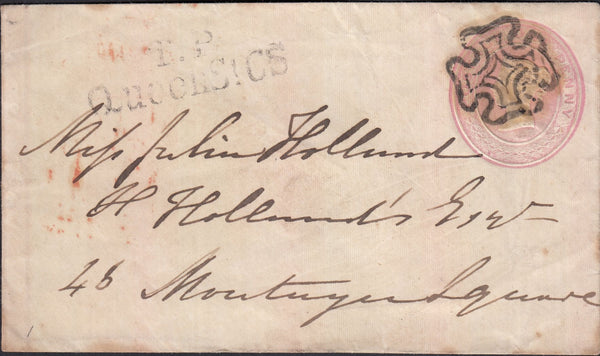 T.P
Quebec St CS
Miss Julia Holland
H Holland's Esqr
46 Montagu Square